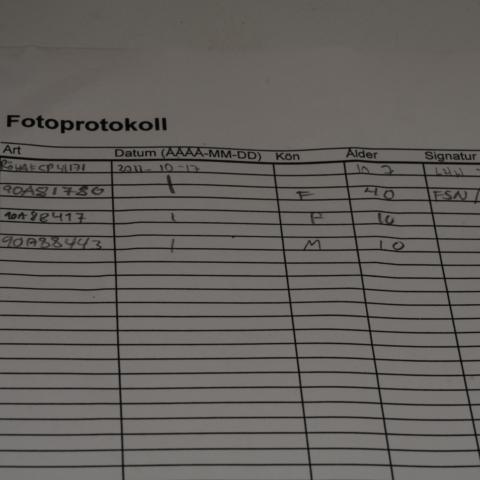 Fotoprotokoll
Art Datum (ÅÅÅÅ-MM-DD) Kön Ålder Signatur
2011-10-17
90A81786 | F 40 FSN/
90A88417 | F 10
90A88443 | M 10